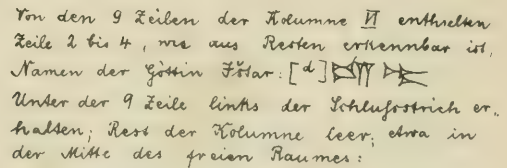 Von den 9 Zeilen der Kolumne VI enthielten
Zeile 2 bis 4, wie aus Resten erkennbar ist,
Namen der Göttin Ištar: [d]
Unter der 9 Zeile links der Schlußstrich er-
halten; Rest der Kolumne leer; etwa in
der Mitte des freien Raumes: